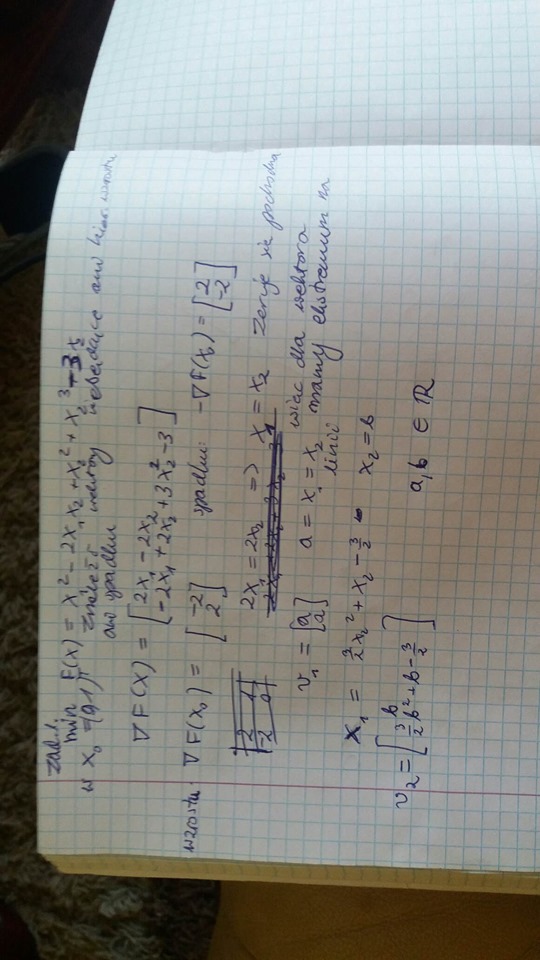 zad.1.
min F(x) = x₁² - 2x₁x₂ + x₂² + x₂³ - 3x₂
w x₀ = (0,1)ᵀ znaleźć wektory niebędące ani kier. wzrostu
ani spadku
∇F(x) = [2x₁ - 2x₂
-2x₁ + 2x₂ + 3x₂² - 3]
wzrostu: ∇F(x₀) = [-2 2] spadku: -∇F(x₀) = [2 -2]
2 1
-2 0
2x₁ = 2x₂ => x₁ = x₂ zeruje się pochodna
v₁ = [a a] a = x₁ = x₂ więc dla wektora
mamy ekstremum na
linii
x₁ = 3/2 x₂² + x₂ - 3/2 x₂ = b
v₂ = [b
3/2 b² + b - 3/2]
a, b ∈ ℝ